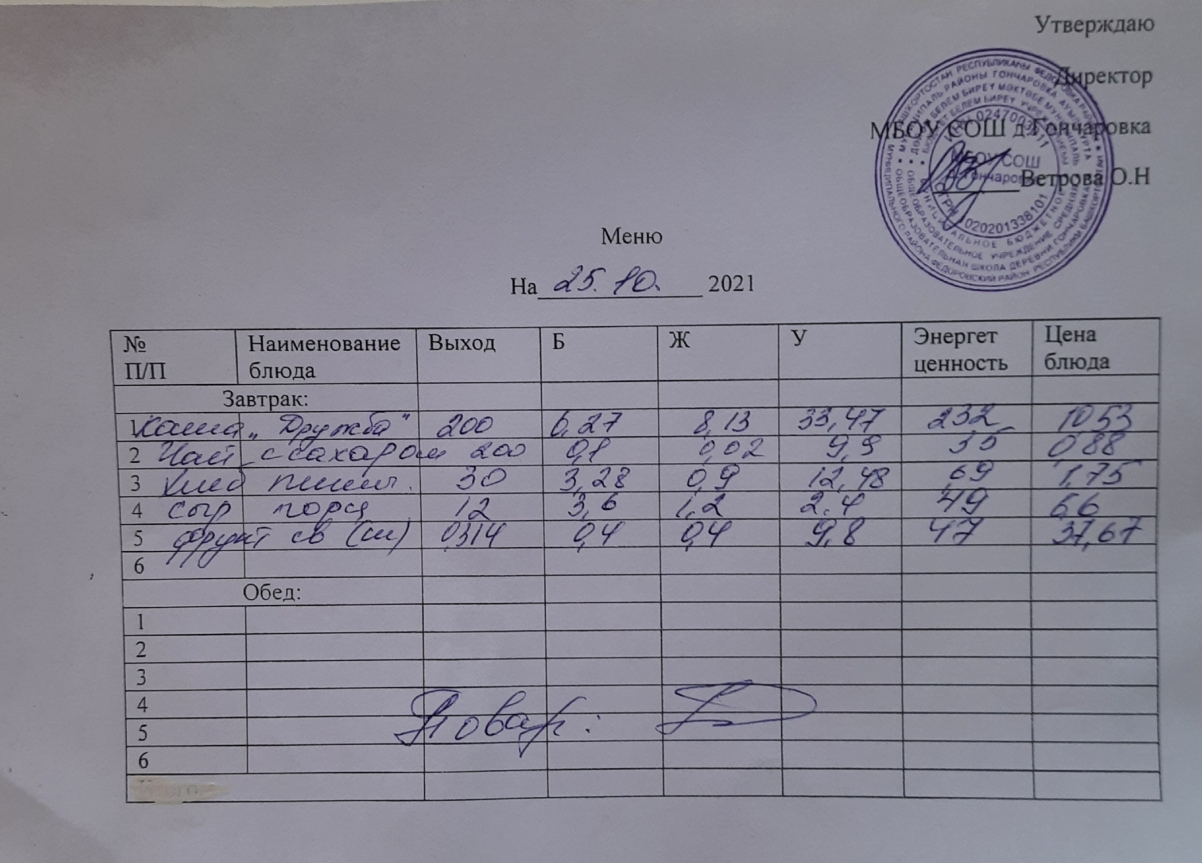 Утверждаю
Директор
МБОУ СОШ д.Гончаровка
Ветрова О.Н
МБОУ СОШ
Меню
На 25.10. 2021
№ П/П Наименование блюда Выход Б Ж У Энергет ценность Цена блюда
Завтрак:
1 Каша „Дружба" 200 6,27 8,13 33,47 232 1053
2 Чай с сахаром 200 0,1 0,02 9,9 35 088
3 Хлеб пшен. 30 3,28 0,9 12,48 69 1,75
4 сыр порц 12 3,6 1,2 2.4 49 66
5 фрукт св 0,4 0,4 9,8 47 37,67
6
Обед:
1
2
3
4
5
6
Повар: